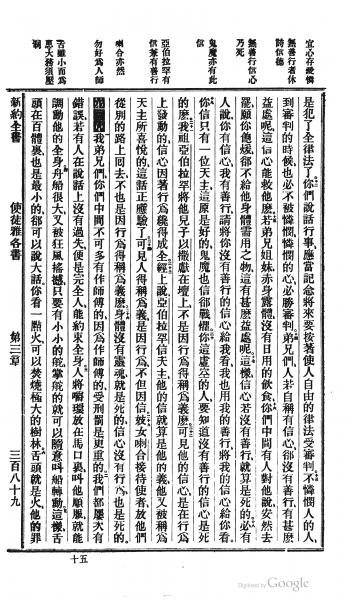 宜心存憐憫
無善行者休
誇信德
無善行信心
乃死
鬼魔亦有此
信
亞伯拉罕有
信兼有善行
喇合亦然
勿好爲人師
舌雖小而爲
惡大務須壓
制
是犯了全律法了你們說話行事應當記念將來要按著使人自由的律法受審判不憐憫人的人
到審判的時候也必不被憐憫憐憫的心必勝審判弟兄們人若自稱有信心卻沒有善行有甚麼
益處呢這信心能救他麼若弟兄姐妹赤身露體沒有日用的飲食你們中間有人對他說安然去
罷願你飽煖卻不給他身體需用之物這有甚麼益處呢這樣信心若沒有善行就算是死的必有
人說你有信心我有善行請將你沒有善行的信心給我看我也用我的善行將我的信心給你看
你信只有一位天主這原是好的鬼魔也信卻戰懼你這虛空的人要知道沒有善行的信心是死
的麼我祖亞伯拉罕將他兒子以撒獻在壇上不是因行爲得稱爲義麼可見他的信心是在行爲
上發動的信心因著行爲纔得成全經上說亞伯拉罕信天主他的信就算是他的義他又被稱爲
天主所喜悅的這話正應驗了可見人得稱爲義是因行爲不但因信妓女喇合接待使者放他們
從別的路上回去不也是因行爲得稱爲義麼身體沒有靈魂就是死的信心沒有行爲也是死的
第三章我弟兄們你們中間不可多有作師傅的因爲作師傅的受刑罰是更重的我們都屢次有
錯誤若有人在說話上沒有過失便是完全人能約束全身人將嚼環放在馬口裏叫他順服就能
調動他的全身舟船很大又被狂風搖撼只要有小小的舵掌舵的就可以隨意叫船轉動這樣舌
頭在百體裏也是最小的卻可以說大話你看一點火可以焚燒極大的樹林舌頭就是火他的罪
新約全書 使徒雅各書 第三章 三百八十九
十五
Digitized by Google